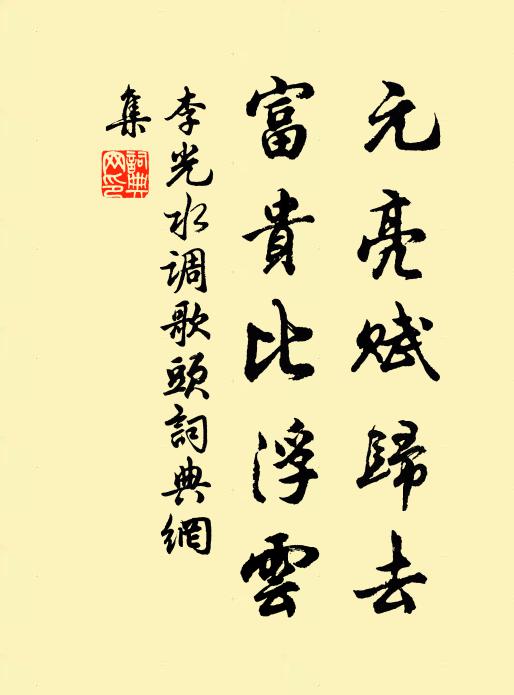 元亮赋歸去
富貴比浮雲
李光水调歌頭詞典網
集
詞典
网印